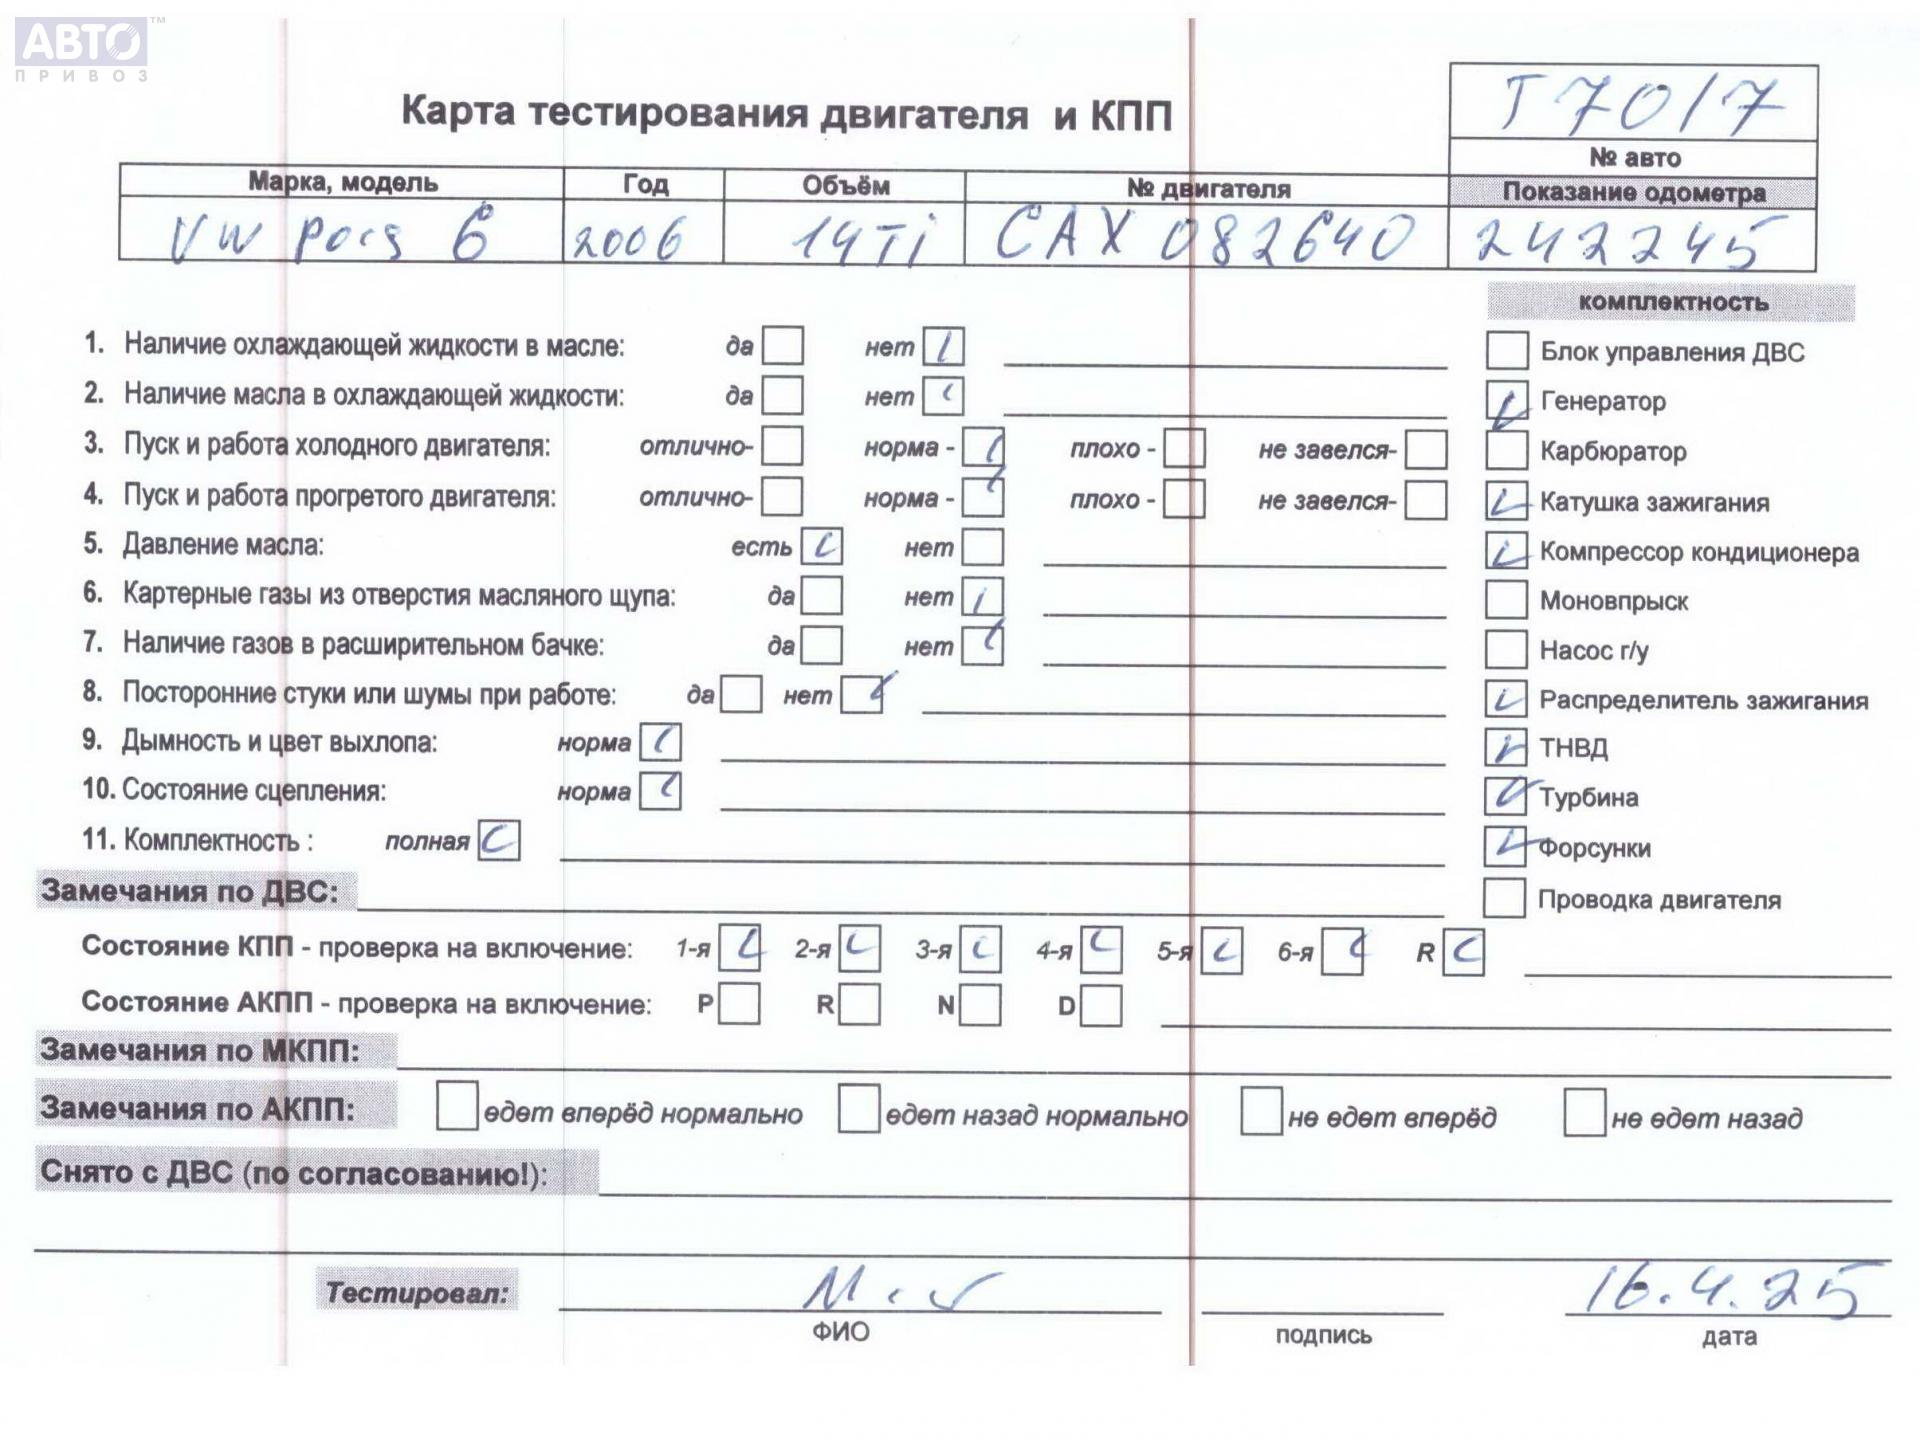 АВТО™
ПРИВОЗ
Карта тестирования двигателя и КПП
T 7017
№ авто
Марка, модель Год Объём № двигателя Показание одометра
VW 6 2006 14Ti CAX 082640 242245
комплектность
1. Наличие охлаждающей жидкости в масле: да нет
Блок управления ДВС
2. Наличие масла в охлаждающей жидкости: да нет
Генератор
3. Пуск и работа холодного двигателя: отлично- норма - плохо - не завелся-
Карбюратор
4. Пуск и работа прогретого двигателя: отлично- норма - плохо - не завелся-
Катушка зажигания
5. Давление масла: есть нет
Компрессор кондиционера
6. Картерные газы из отверстия масляного щупа: да нет
Моновпрыск
7. Наличие газов в расширительном бачке: да нет
Насос г/у
8. Посторонние стуки или шумы при работе: да нет
Распределитель зажигания
9. Дымность и цвет выхлопа: норма
ТНВД
10. Состояние сцепления: норма
Турбина
11. Комплектность : полная
Форсунки
Замечания по ДВС:
Проводка двигателя
Состояние КПП - проверка на включение: 1-я 2-я 3-я 4-я 5-я 6-я R
Состояние АКПП - проверка на включение: P R N D
Замечания по МКПП:
Замечания по АКПП: едет вперёд нормально едет назад нормально не едет вперёд не едет назад
Снято с ДВС (по согласованию!):
Тестировал: 16.4.25
ФИО подпись дата